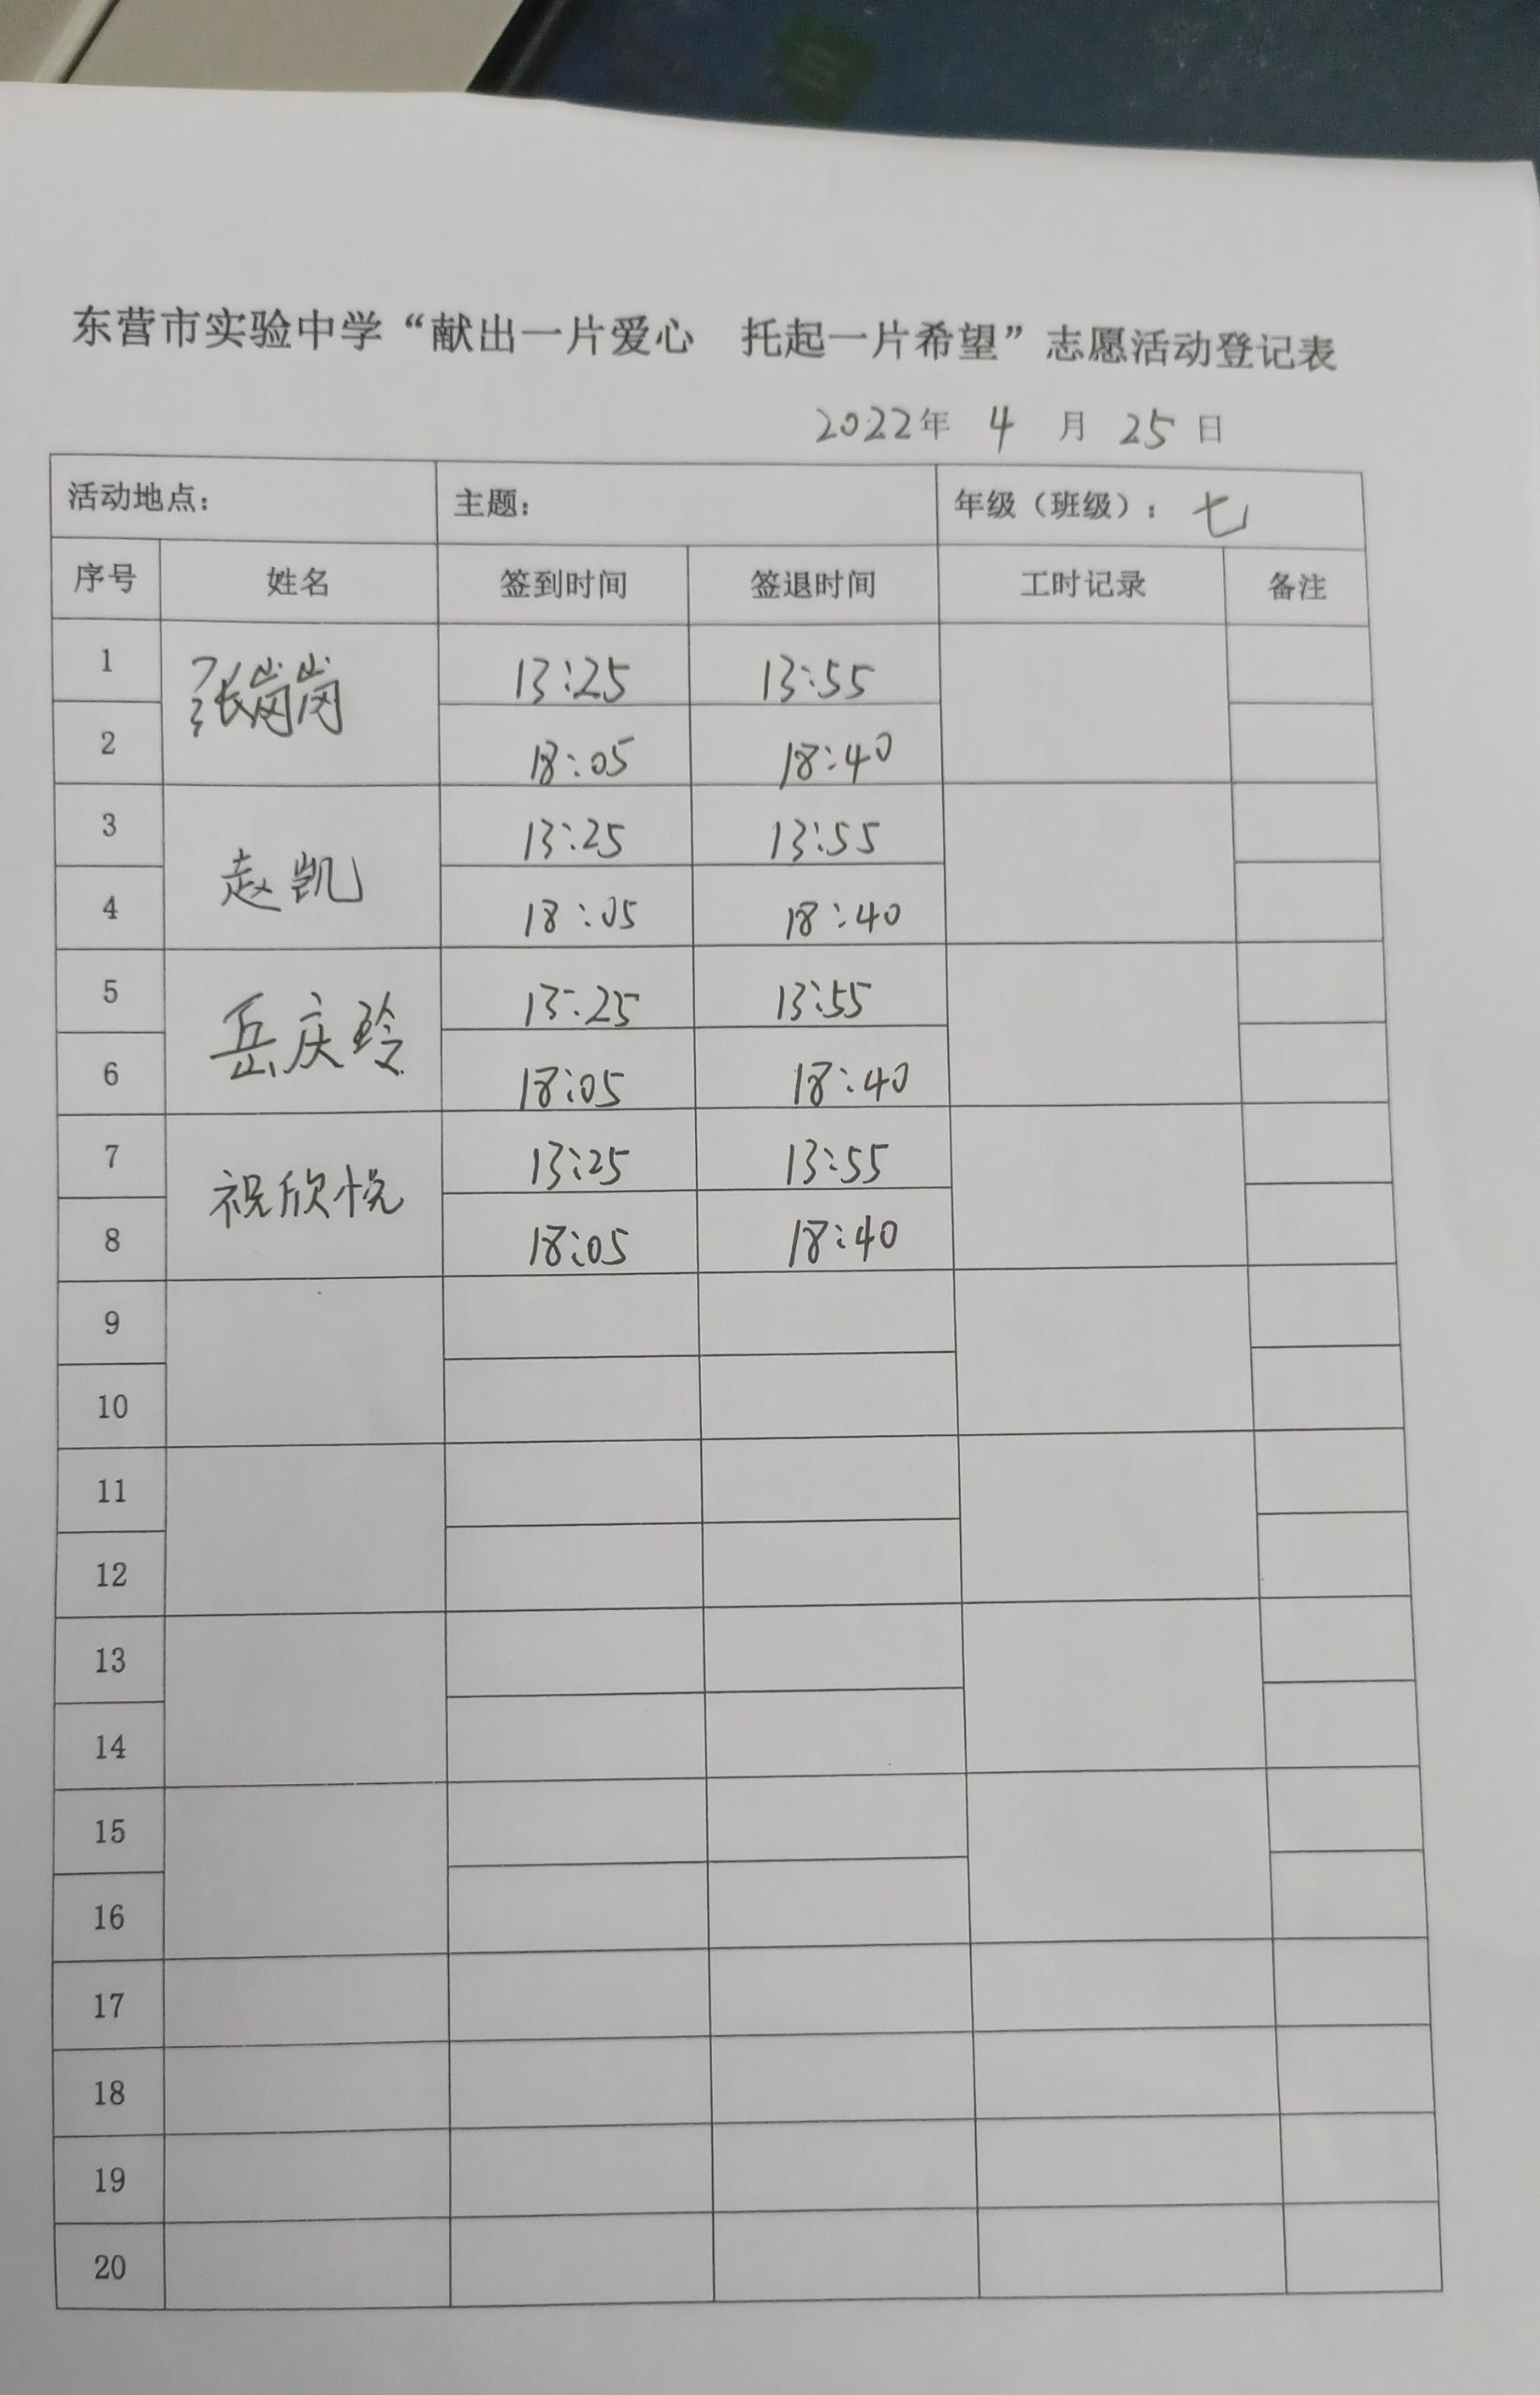 东营市实验中学“献出一片爱心 托起一片希望”志愿活动登记表
2022年 4 月 25 日
活动地点： 主题： 年级（班级）：七
序号 姓名 签到时间 签退时间 工时记录 备注
1 张岗岗 13:25 13:55
2 18:05 18:40
3 赵凯 13:25 13:55
4 18:05 18:40
5 岳庆玲 13:25 13:55
6 18:05 18:40
7 祝欣悦 13:25 13:55
8 18:05 18:40
9
10
11
12
13
14
15
16
17
18
19
20